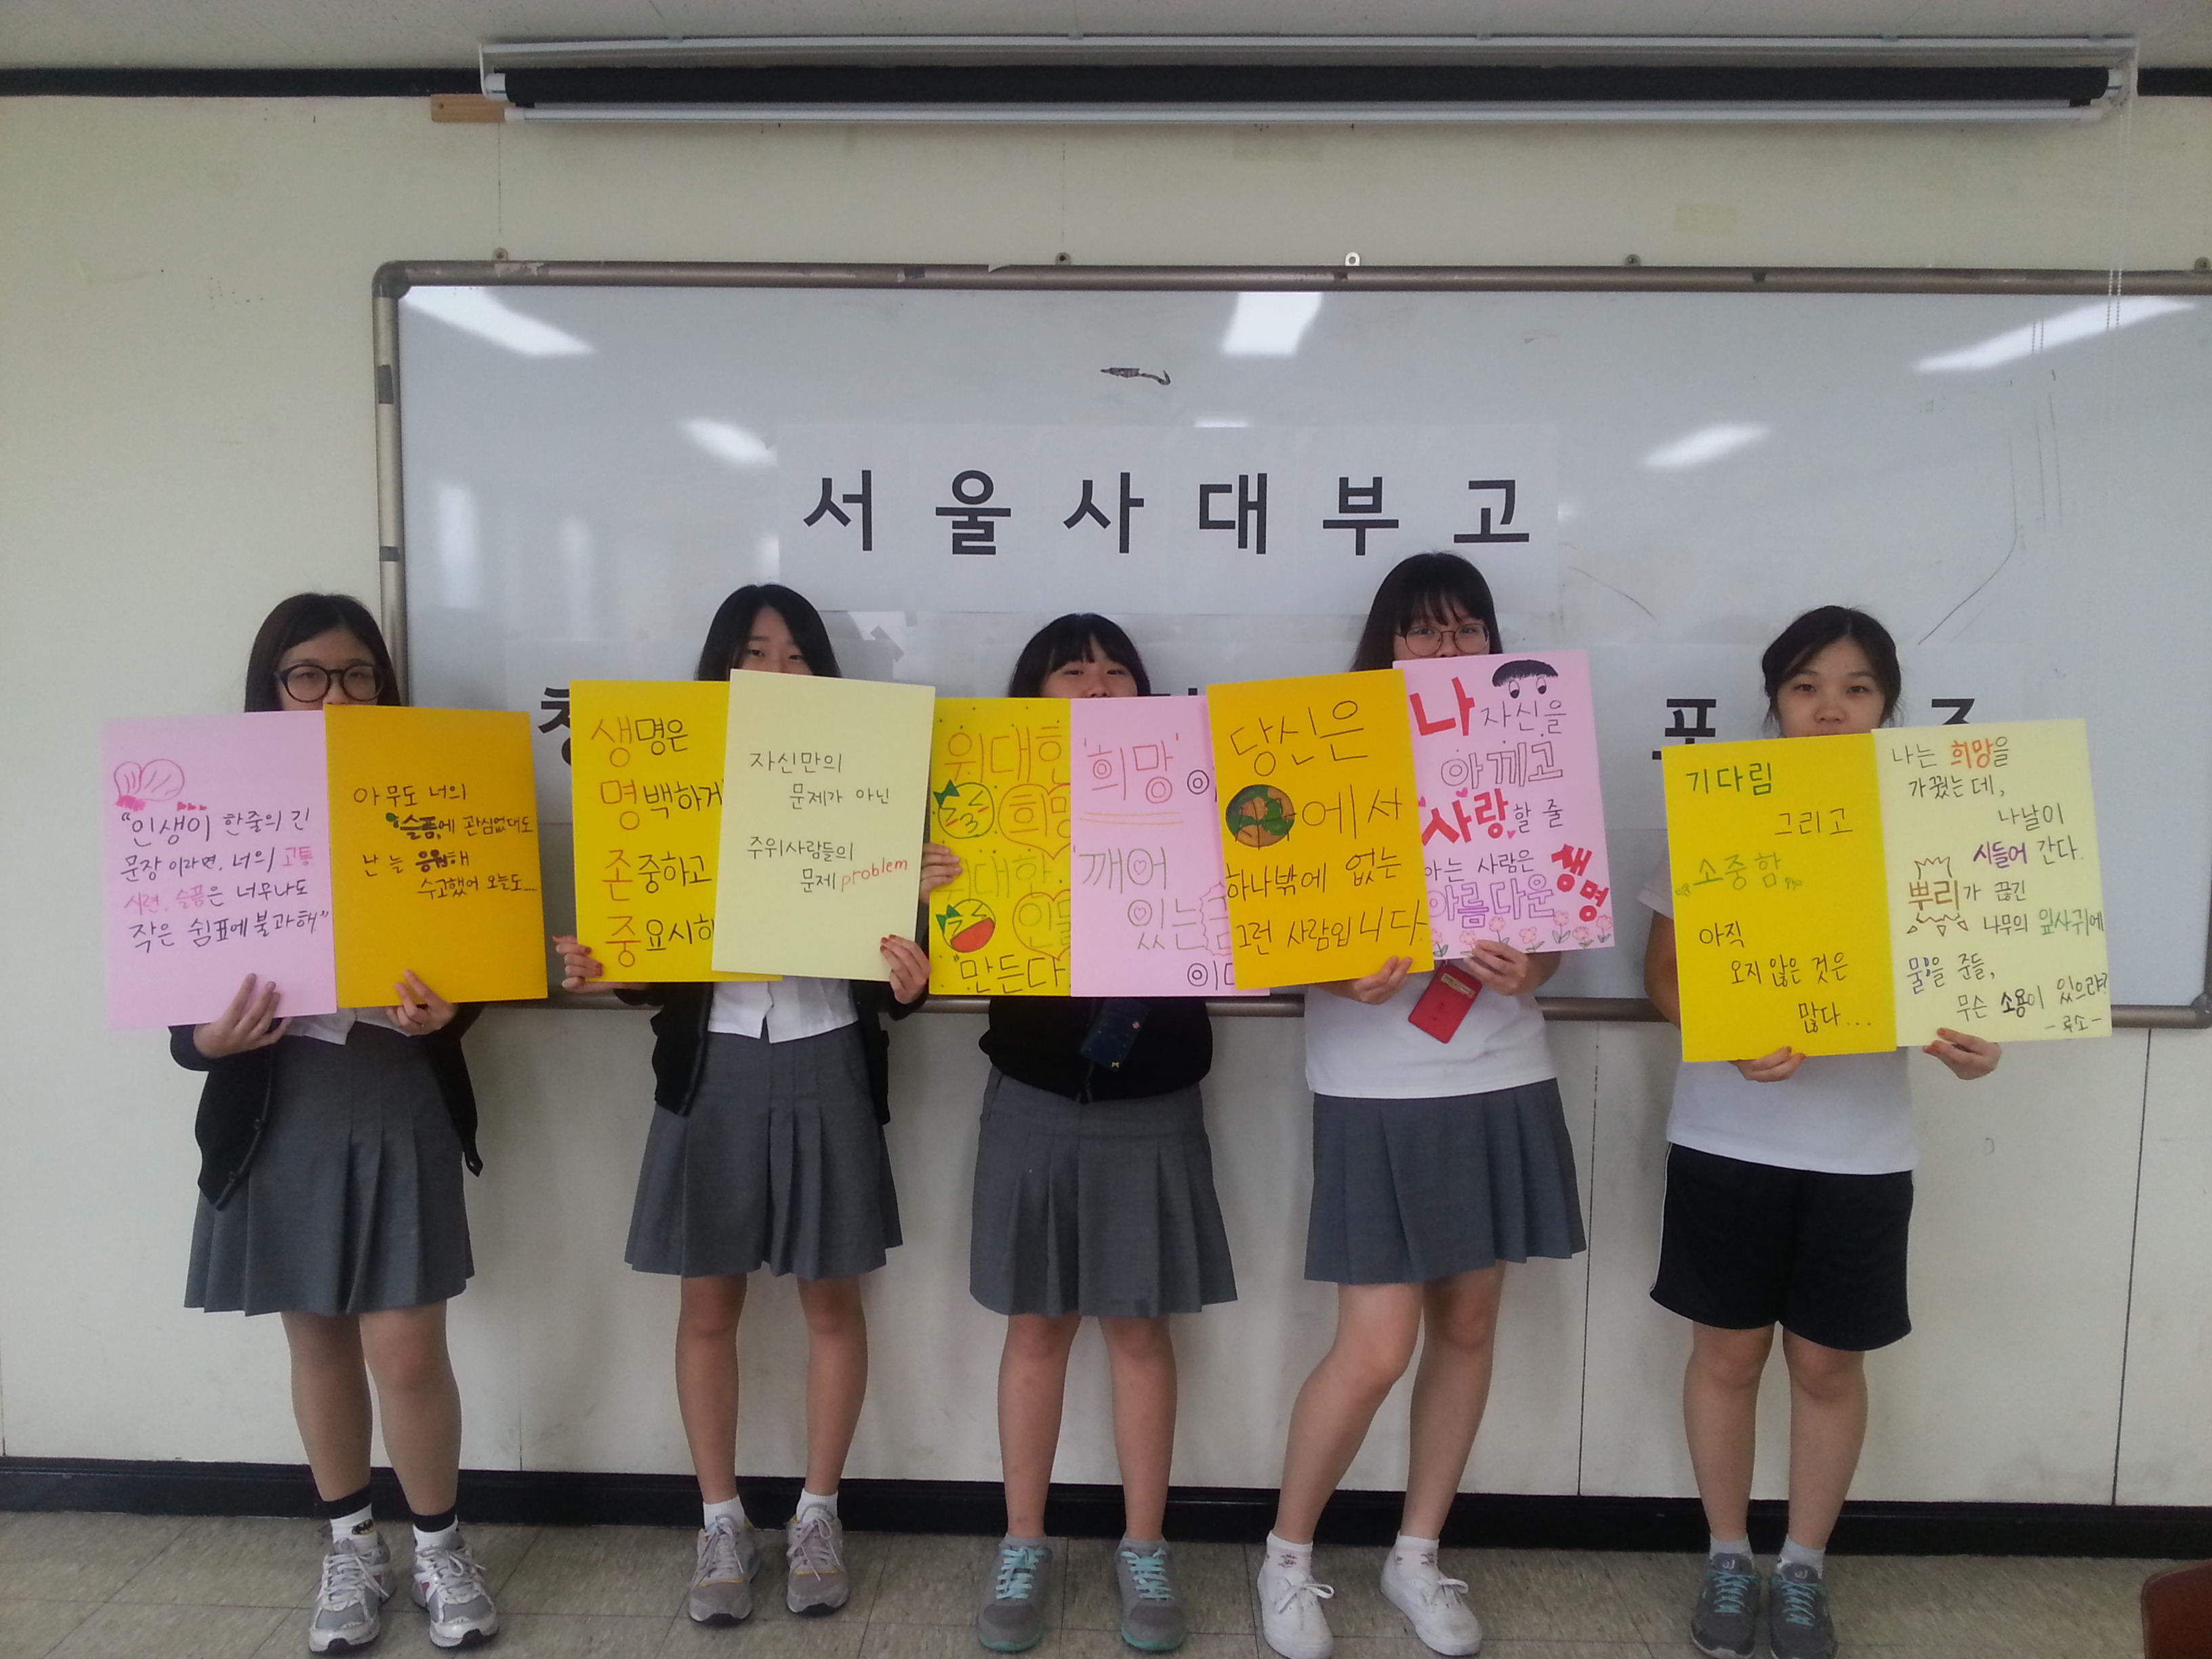 서울사대부고
"인생이 한줄의 긴
문장이라면, 너의 고통
시련, 슬픔은 너무나도
작은 쉼표에 불과해"
아무도 너의
슬픔에 관심없대도
난 늘 응원해
수고했어 오늘도
생명은
명백하게
존중하고
중요시하
자신만의
문제가 아닌
주위사람들의
문제 problem
위대한
희망
위대한
인물
"만든다
'희망'이
'깨어
있는
이다
당신은
에서
하나밖에 없는
그런 사람입니다.
나 자신을
아끼고
사랑할 줄
아는 사람은
아름다운 생명
기다림
그리고
소중함
아직
오지 않은 것은
많다...
나는 희망을
가꿨는데,
나날이
시들어 간다.
뿌리가 끊긴
나무의 잎사귀에
물을 준들,
무슨 소용이 있으랴?
-루소-